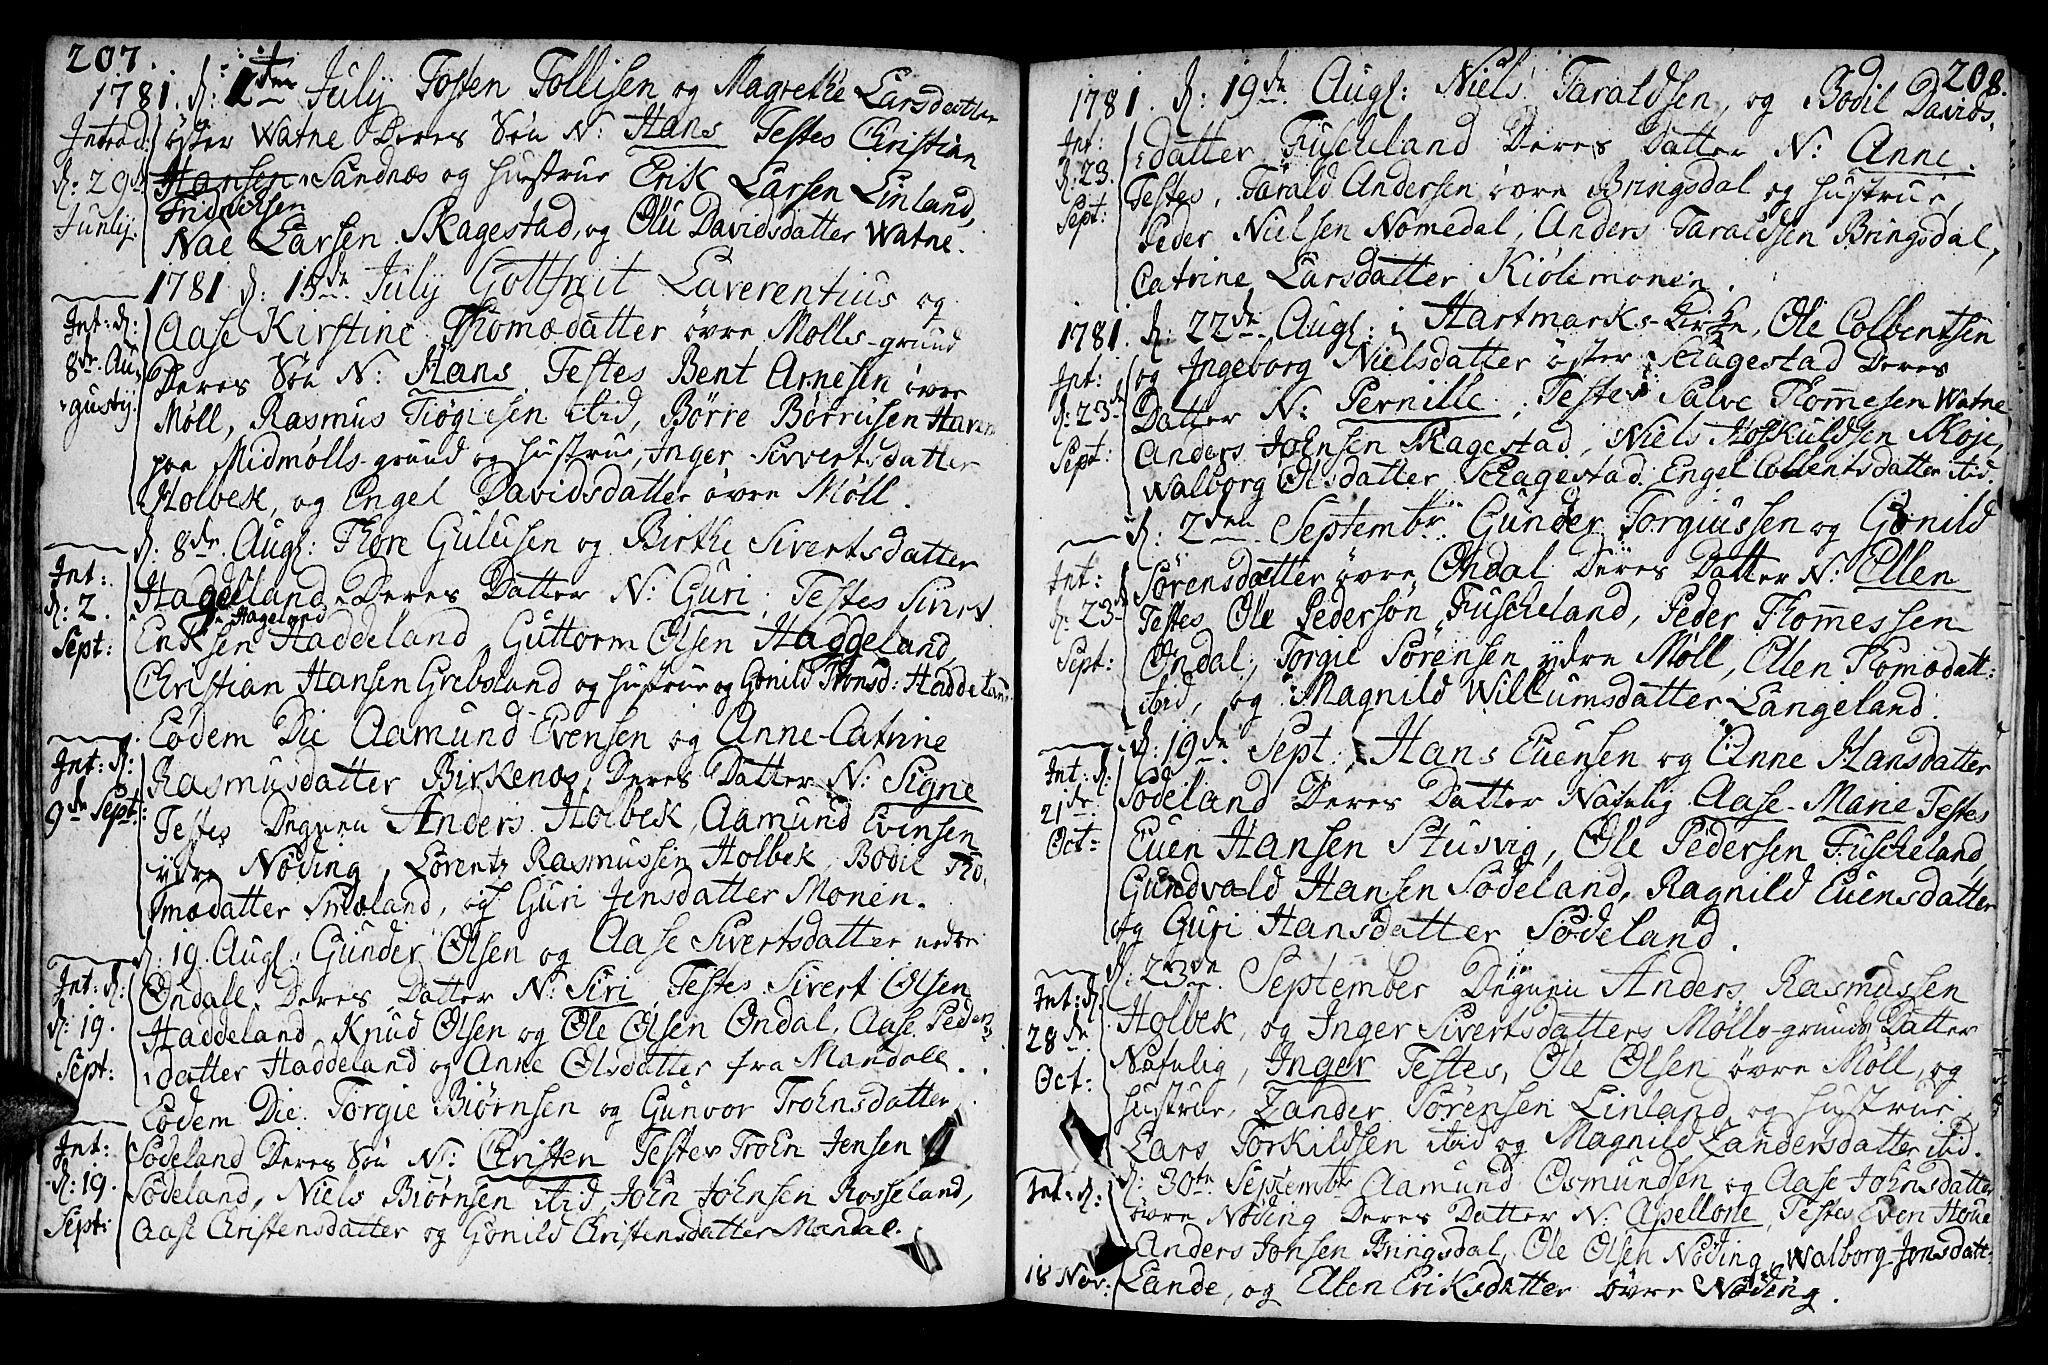 207.
1781. d: 1ten July Tosten Tollisen og Magrethe Larsdatter
Introd: öster Watne Deres Sön N: Hans Testes Christian
d: 29de Hansen Sandnæs og hustrue Erik Larsen Linland,
Fridrichsen
Junij. Nae Larsen Skagestad, og Olu Davidsdatter Watne.
1781 d: 15de July Gottfreit Laverentius og
Int: d: Aase Kirstine Thomædatter övre Mölls-grund
8de Au- Deres Sön N: Hans Testes Bent Arnesen övre
gustij. Möll, Rasmus ibid, Börre Börrusen
paa Midmölls-grund og hustrue, Inger Sivvertsdatter
Holbek, og Engel Davidsdatter övre Möll.
d: 8de Augl: Thore Gulusen og Birthe Sivertsdatter
Int: Haddeland Deres Datter N: Guri, Testes Sivert
d: 2. Hageland
Sept: Eriksen Haddeland, Guttorm Olsen Haddeland,
Christian Hansen Grebsland og hustrue og Gonild Tronsd: Haddeland
Eodem Die Aamund Evensen og Anne-Catrine
Int: d: Rasmusdatter Birkenæs, Deres Datter N: Signe
9de Sept: Testes Degnen Anders Holbek, Aamund Evensen
ydre Nöding, Lorentz Rasmussen Holbek, Bodil Tho-
mædatter Smaland, og Guri Jensdatter Monen.
d: 19. Augl. Gunder Olsen og Aase Sivertsdatter nedre
Int: d: Öndall, Deres Datter N: Siri, Testes Sivert Olsen
d: 19. Haddeland Knud Olsen og Ole Olsen Öndal, Aase Peders-
Sept: datter Haddeland og Anne Olsdatter fra Mandall.
Eodem Die Torgie Biörnsen og Gunvor Trohnsdatter
Int: Södeland Deres Sön N: Christen Testes Troen Jensen
d: 19. Södeland, Niels Biörnsen ibid, John Johnsen Rosseland,
Sept: Aase Christensdatter og Gonild Christensdatter Mandal.
208.
1781. d: 19de Augl: Niels Taraldsen, og Bodil Davids-
Int: datter Fuscheland Deres Datter N: Anne.
d: 23. Testes, Tarald Andersen övre Bringsdal og hustrue,
Sept: Peder Nielsen Nomedal, Anders Taraldsen Bringsdal,
Catrine Larsdatter Kiölemonen.
1781. d: 22de Augl: i Hartmarks-Kirke, Ole Colbentsen
Int: og Ingeborg Nielsdatter öster Skagestad Deres
d: 23de Datter N: Pernille, Testes Salve Thommesen Watne
Sept: Anders Johnsen Skagestad, Niels Hoskuldsen Skoje,
Walborg Olsdatter Skagestad, Engel Collentsdatter ibid.
d: 2den Septembr: Gunder Torgiussen og Gonild
Int: Sörensdatter övre Öndal Deres Datter N: Ellen
d: 23de Testes Ole Pedersön Fuscheland, Peder Thommessen
Sept: Öndal, Torgie Sörensen ydre Möll, Ellen Thomædatt:
ibid, og Magnild Willumsdatter Langeland.
d: 19de Sept: Hans Evensen og Anne Hansdatter
Int: d: Södeland Deres Datter Natulig Aase-Marie Testes
21de Even Hansen Stusvig, Ole Pedersen Fuscheland,
Oct: Gundvald Hansen Södeland, Ragnild Evensdatter
og Guri Hansdatter Södeland.
d: 23de September Degnen Anders Rasmussen
Int: d: Holbek, og Inger Sivertsdatters Mölls-grunds Datter
28de Natulig, Inger Testes, Ole Olsen övre Möll, og
Oct: hustrue, Zander Sörensen Linland og hustrue
Lars Torkildsen ibid og Magnild Zandersdatter ibid.
Int: d: d: 30te Septembr Aamund Osmundsen og Aase Johnsdatter
övre Nöding Deres Datter N: Apellone, Testes Even Houe
Anders Jonsen Bringsdal, Ole Olsen Nöding, Walborg Jonsdatt:
18 Nov: Lande, og Ellen Eriksdatter övre Nöding.